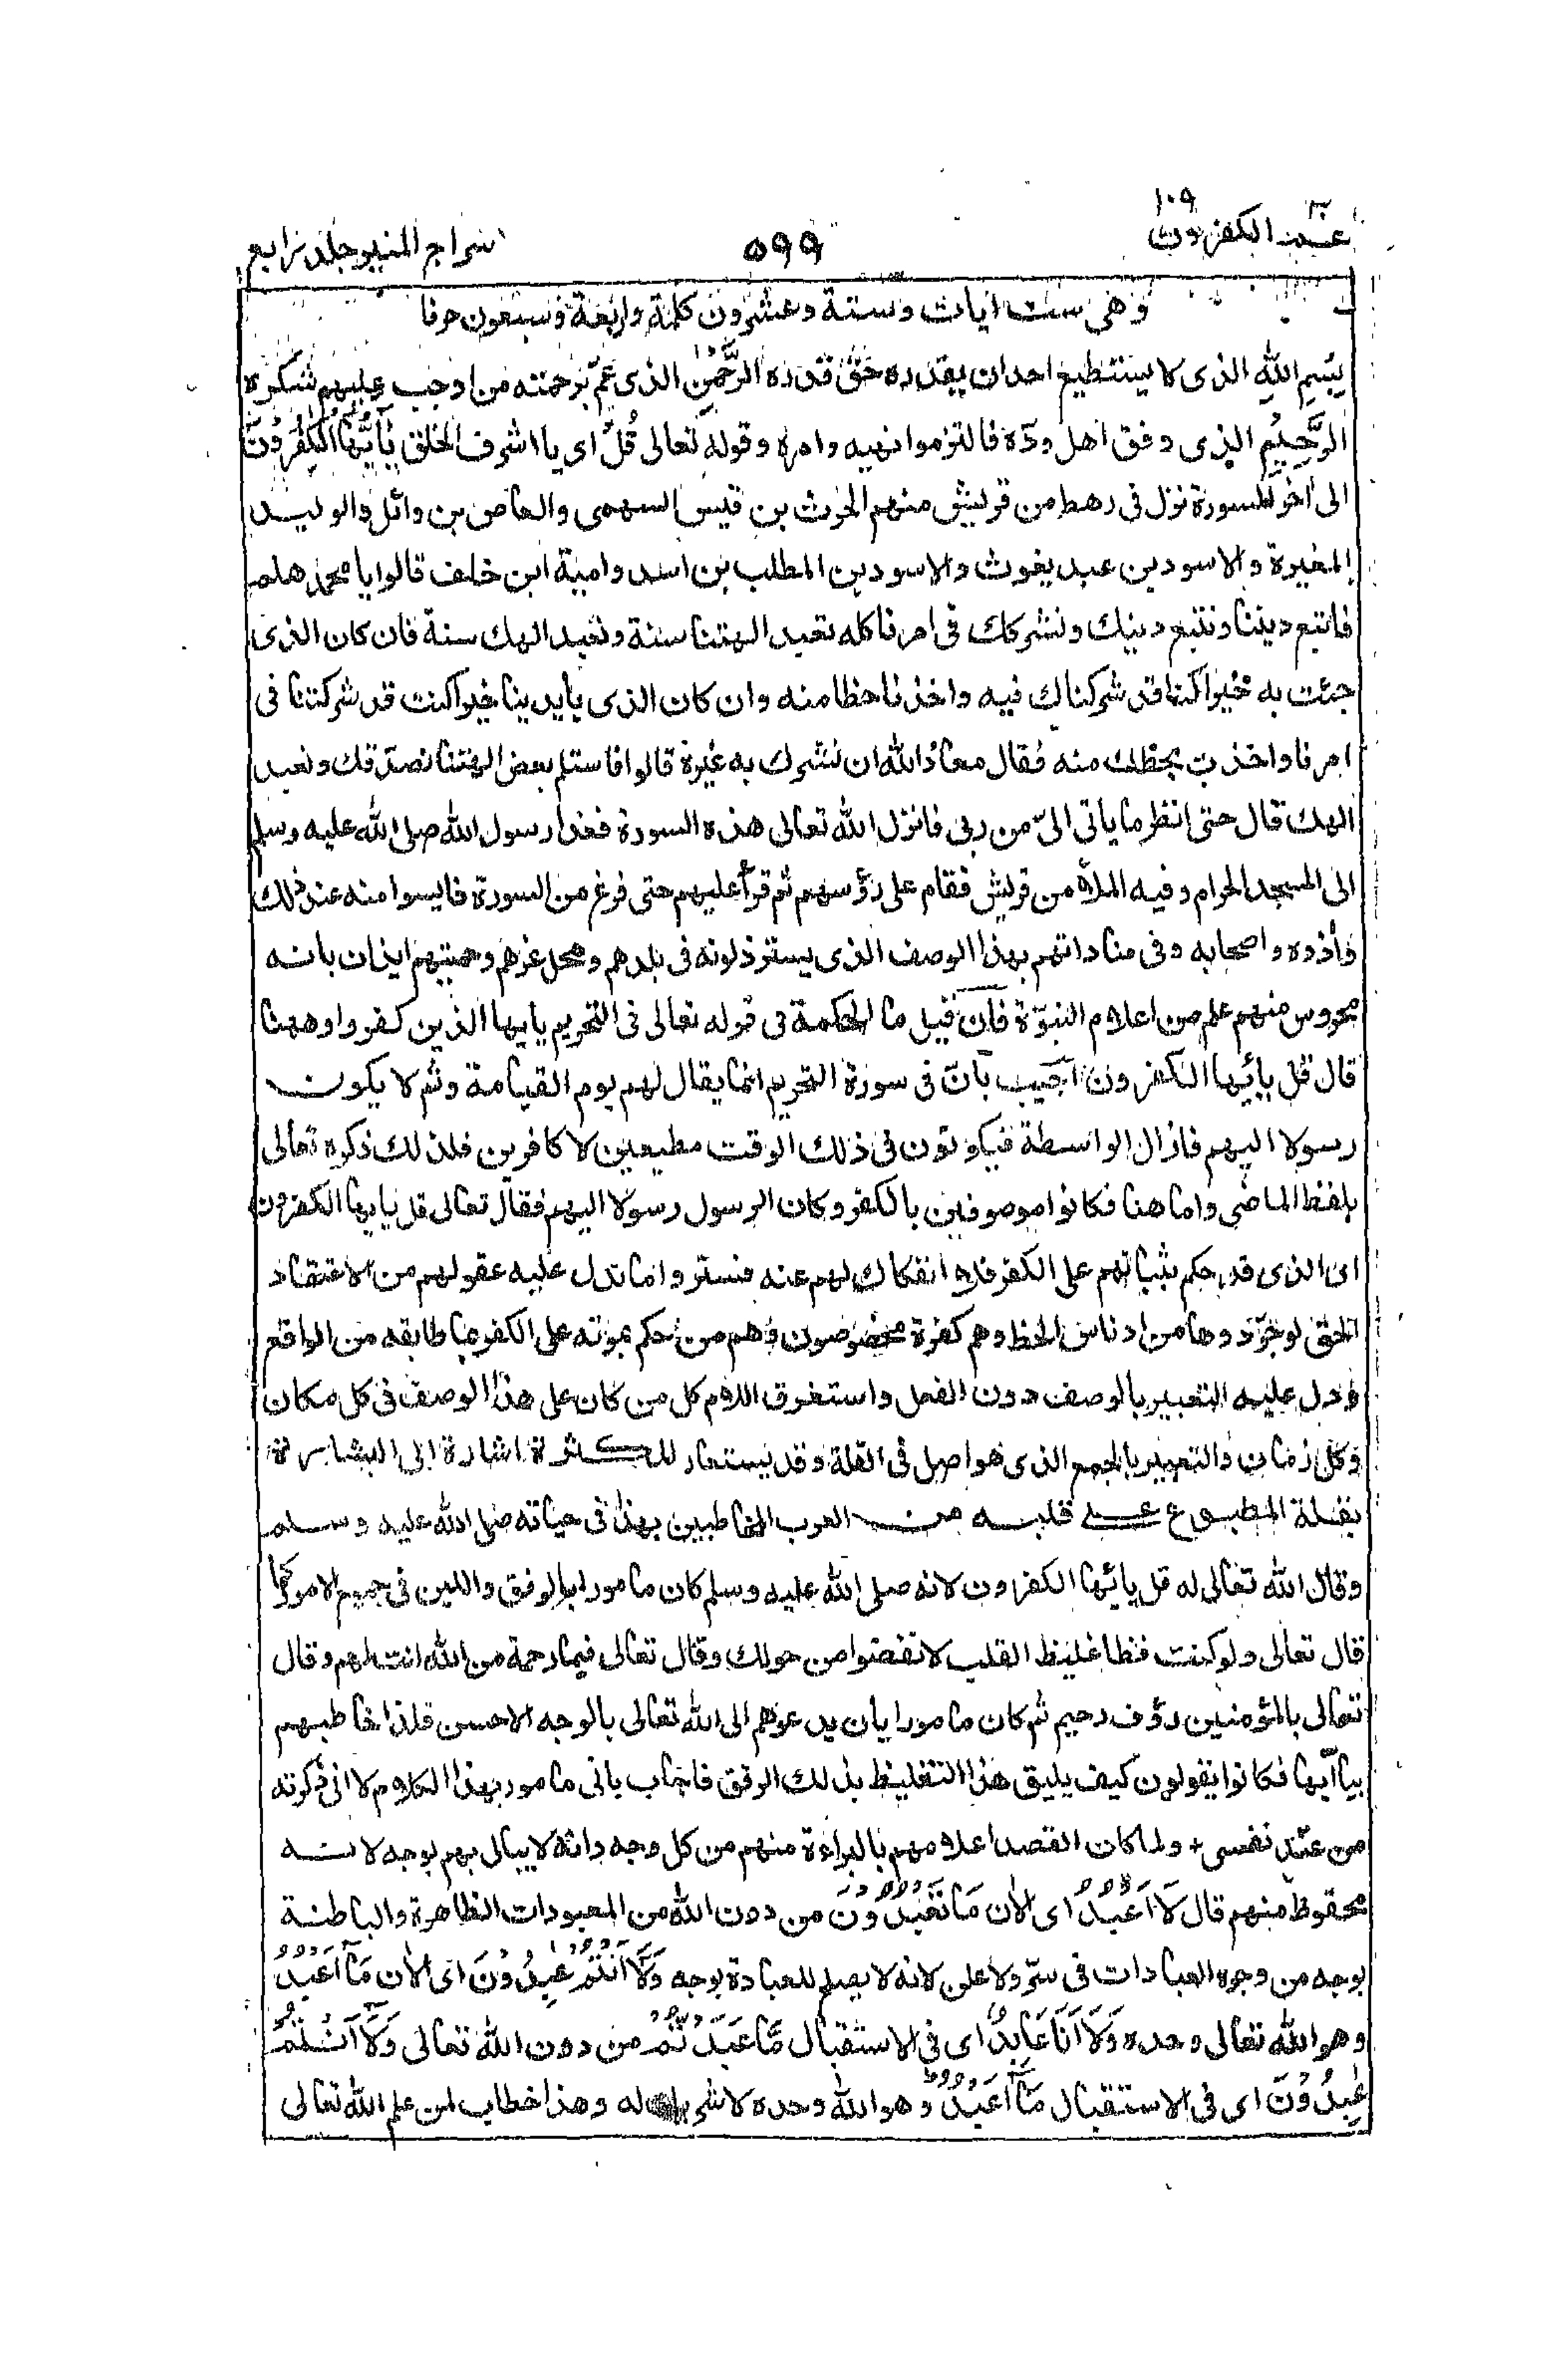 عمّ ٣٠ الكفرون ١٠٩
٥٩٩
سراج المنير جلد رابع
وهى ست ايات وستة وعشرون كلمة واربعة وسبعون حرفا
بِسْمِ اللهِ الذى لا يستطيع احد ان يقدره حق قدره الرَّحْمٰنِ الذى عمّ برحمته من اوجب عليهم شكره
الرَّحِيْمِ الذى وفق اهل ودّه فالتزموا نهيه وامره وقوله تعالى قُلْ اى يا اشرف الخلق يٰٓاَيُّهَا الْكٰفِرُوْنَ
الى اخر السورة نزل فى رهط من قريش منهم الحرث بن قيس السهمى والعاص بن وائل والوليد
المغيرة والاسود بن عبد يغوث والاسود بن المطلب بن اسد وامية ابن خلف قالوا يا محمد هلم
فاتبع ديننا ونتبع دينك ونشركك فى امرنا كله تعبد الهتنا سنة ونعبد الهك سنة فان كان الذى
جئت به خيرا كنا قد شركناك فيه واخذنا حظا منه وان كان الذى بايدينا خيرا كنت قد شركتنا فى
امرنا واخذت بحظك منه فقال معاذ الله ان نشرك به غيره قالوا فاستلم بعض الهتنا نصدقك ونعبد
الهك قال حتى انظر ما ياتى الىّ من ربى فانزل الله تعالى هذه السورة فغدا رسول الله صلى الله عليه وسلم
الى المسجد الحرام وفيه الملأ من قريش فقام على رؤسهم ثم قرأ عليهم حتى فرغ من السورة فايسوا منه عند ذلك
فأذوه واصحابه وفى مناداتهم بهذا الوصف الذى يسترذلونه فى بلدهم ومحل عزهم وحميتهم ايذان بانه
محروس منهم علم من اعلام النبوّة فان قيل ما الحكمة فى قوله تعالى فى التحريم يايها الذين كفروا وههنا
قال قل يايها الكفرون اجيب بانّ فى سورة التحريم انما يقال لهم يوم القيامة وثم لا يكون
رسولا اليهم فازال الواسطة فيكونون فى ذلك الوقت مطيعين لا كافرين فلذلك ذكره تعالى
بلفظ الماضى واما هنا فكانوا موصوفين بالكفر وكان الرسول رسولا اليهم فقال تعالى قل يايها الكفرون
اى الذى قد حكم بثباتهم على الكفر فلا انفكاك لهم عنه فستروا ما تدل عليه عقولهم من الاعتقاد
الحق لو جرّدوها من ادناس الحظ وهم كفرة مخصوصون وهم من حكم بموته على الكفر بما طابقه من الواقع
ودل عليه التعبير بالوصف دون الفعل واستغرق اللام كل من كان على هذا الوصف فى كل مكان
وكل زمان والتعبير بالجمع الذى هو اصل فى القلة وقد يستعار للكثرة اشارة الى البشارة
بقلة المطبوع على قلبه من العرب المخاطبين بهذا فى حياته صلى الله عليه وسلم
وقال الله تعالى له قل يائيها الكفرون لانه صلى الله عليه وسلم كان مامورا بالرفق واللين فى جميع الامور كما
قال تعالى ولو كنت فظا غليظ القلب لانفضوا من حولك وقال تعالى فبما رحمة من الله لنت لهم وقال
تعالى بالمؤمنين رؤف رحيم ثم كان مامورا بان يدعوهم الى الله تعالى بالوجه الاحسن فلذا خاطبهم
بيا ايّها فكانوا يقولون كيف يليق هذا التغليظ بذلك الرفق فاجاب بانى مامور بهذا الكلام لا انى ذكرته
من عند نفسى + ولما كان القصد اعلامهم بالبراءة منهم من كل وجه وانه لا يبالى بهم بوجه لانه
محفوظ منهم قال لَآ اَعْبُدُ اى الأن مَا تَعْبُدُوْنَ من دون الله من المعبودات الظاهرة والباطنة
بوجه من وجوه العبادات فى سرّ ولا علن لانه لا يصلح للعبادة بوجه وَلَآ اَنْتُمْ عٰبِدُوْنَ اى الأن مَآ اَعْبُدُ
وهو الله تعالى وحده وَلَآ اَنَا عَابِدٌ اى فى الاستقبال مَّا عَبَدْتُّمْ من دون الله تعالى وَلَآ اَنْتُمْ
عٰبِدُوْنَ اى فى الاستقبال مَآ اَعْبُدُ وهو الله وحده لا شريك له وهذا خطاب لمن علم الله تعالى